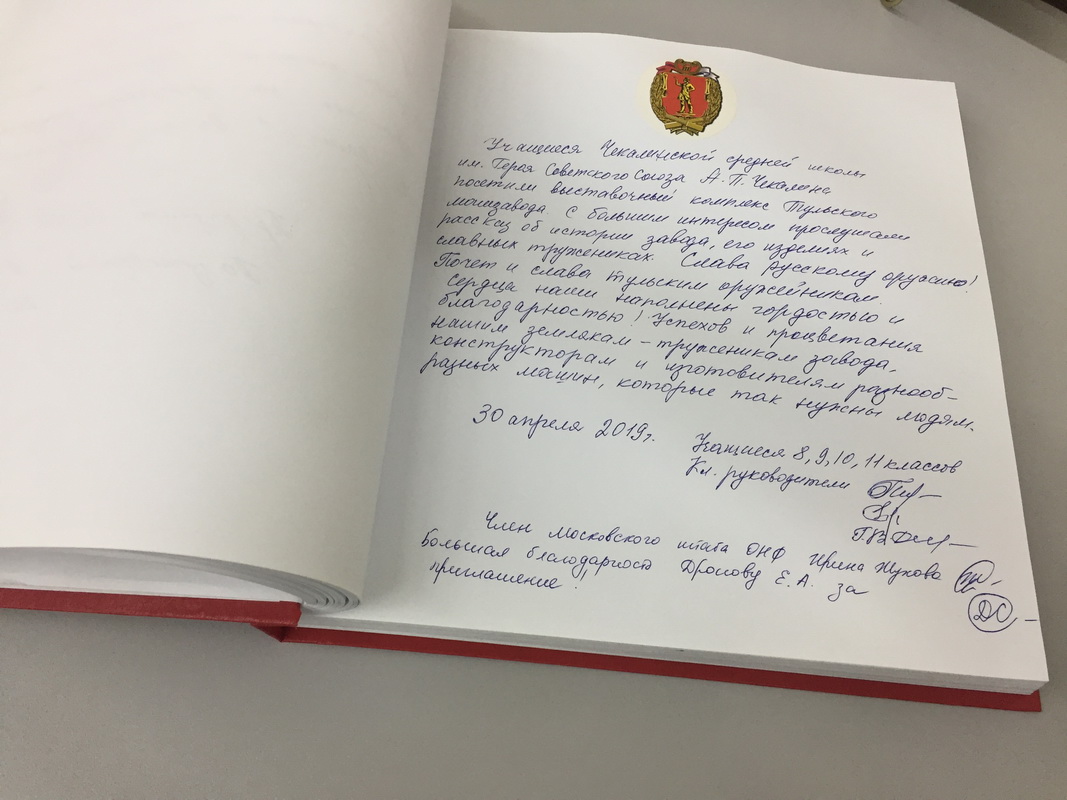 Учащиеся Чекалинской средней школы
им. Героя Советского Союза А.П. Чекалина
посетили выставочный комплекс Тульского
машзавода. С большим интересом прослушали
рассказ об истории завода, его изделиях и
славных тружениках. Слава русскому оружию!
Почет и слава тульским оружейникам.
Сердца наши наполнены гордостью и
благодарностью! Успехов и процветания
нашим землякам – труженикам завода,
конструкторам и изготовителям разнооб-
разных машин, которые так нужны людям.
30 апреля 2019г.
Учащиеся 8, 9, 10, 11 классов
Кл. руководители
Член Московского штаба ОНФ Ирина Жукова
Большая благодарность Дронову Е.А. за
приглашение!
ДС